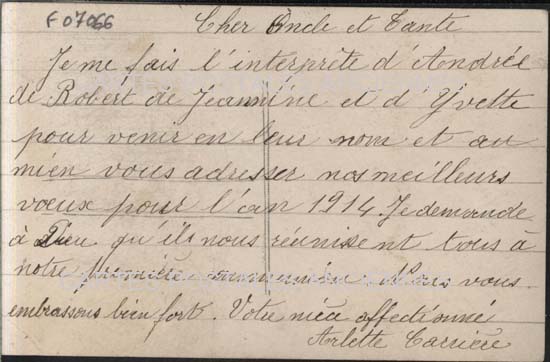 F07066
Cher Oncle et Tante
Je me fais l'interprète d'Andrée
de Robert de Jeannine et d Yvette
pour venir en leur nom et au
mien vous adresser nos meilleurs
vœux pour l'an 1914. Je demande
à Dieu qu'ils nous réunissent tous à
notre première communion. Nous vous
embrassons bien fort. Votre nièce affectionné
Arlette Carrière